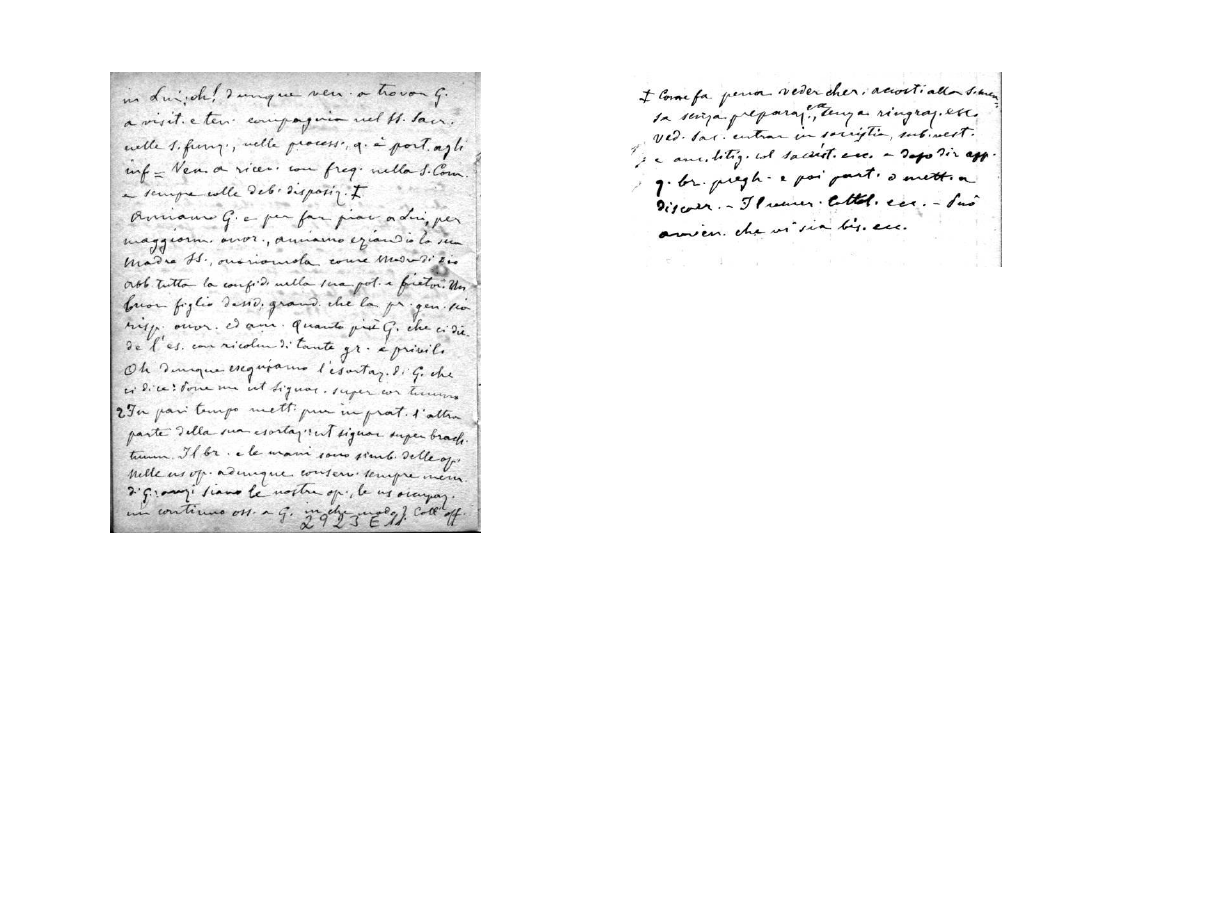 in Lui, oh! dunque ven. a trovar G.
a visit. e ten. compagnia nel SS. Sacr.
nelle S. funz., nelle process., q. è port. agli
inf = Ven. a ricev. con freq. nella S. Com.
e sempre colle deb. disposiz. ‡
Amiamo G. e per far piac. a Lui, per
maggiorm. onor., amiamo eziandio la sua
Madre SS., onoriamola come Madre di Dio
abb. tutta la confid. nella sua pot. e pietà. Un
buon figlio desid. grand. che la pr. gen. sia
risp. onor. ed am. Quanto più G. che ci die-
de l'es. con ricolm. di tante gr. e privil.
Oh dunque eseguiamo l'esortaz. di G. che
ci dice: Pone me ut signac. super cor tuum
2 In pari tempo mett. pur in prat. l'altra
parte della sua esortaz: ut signac super brach.
tuum. Il br. e le mani sono simb. delle op.
Nelle ns op. adunque conserv. sempre mem.
di G. anzi siano le nostre op., le ns occupaz.
un continuo oss. a G. in che modo? Coll' off.
2923 E 11.
‡ Come fa pena veder che si accosti alla S. men-
sa senza preparaz., senza ringraz. ecc.
ved. sac. entrar in sacristia, sub. vest.
e anc. litig. col sacrist. ecc. e dopo dir app.
q. br. pregh. e poi part. o mett. a
discorr. - Il numer. cattol. ecc. - Può
avven. che vi sia bis. ecc.